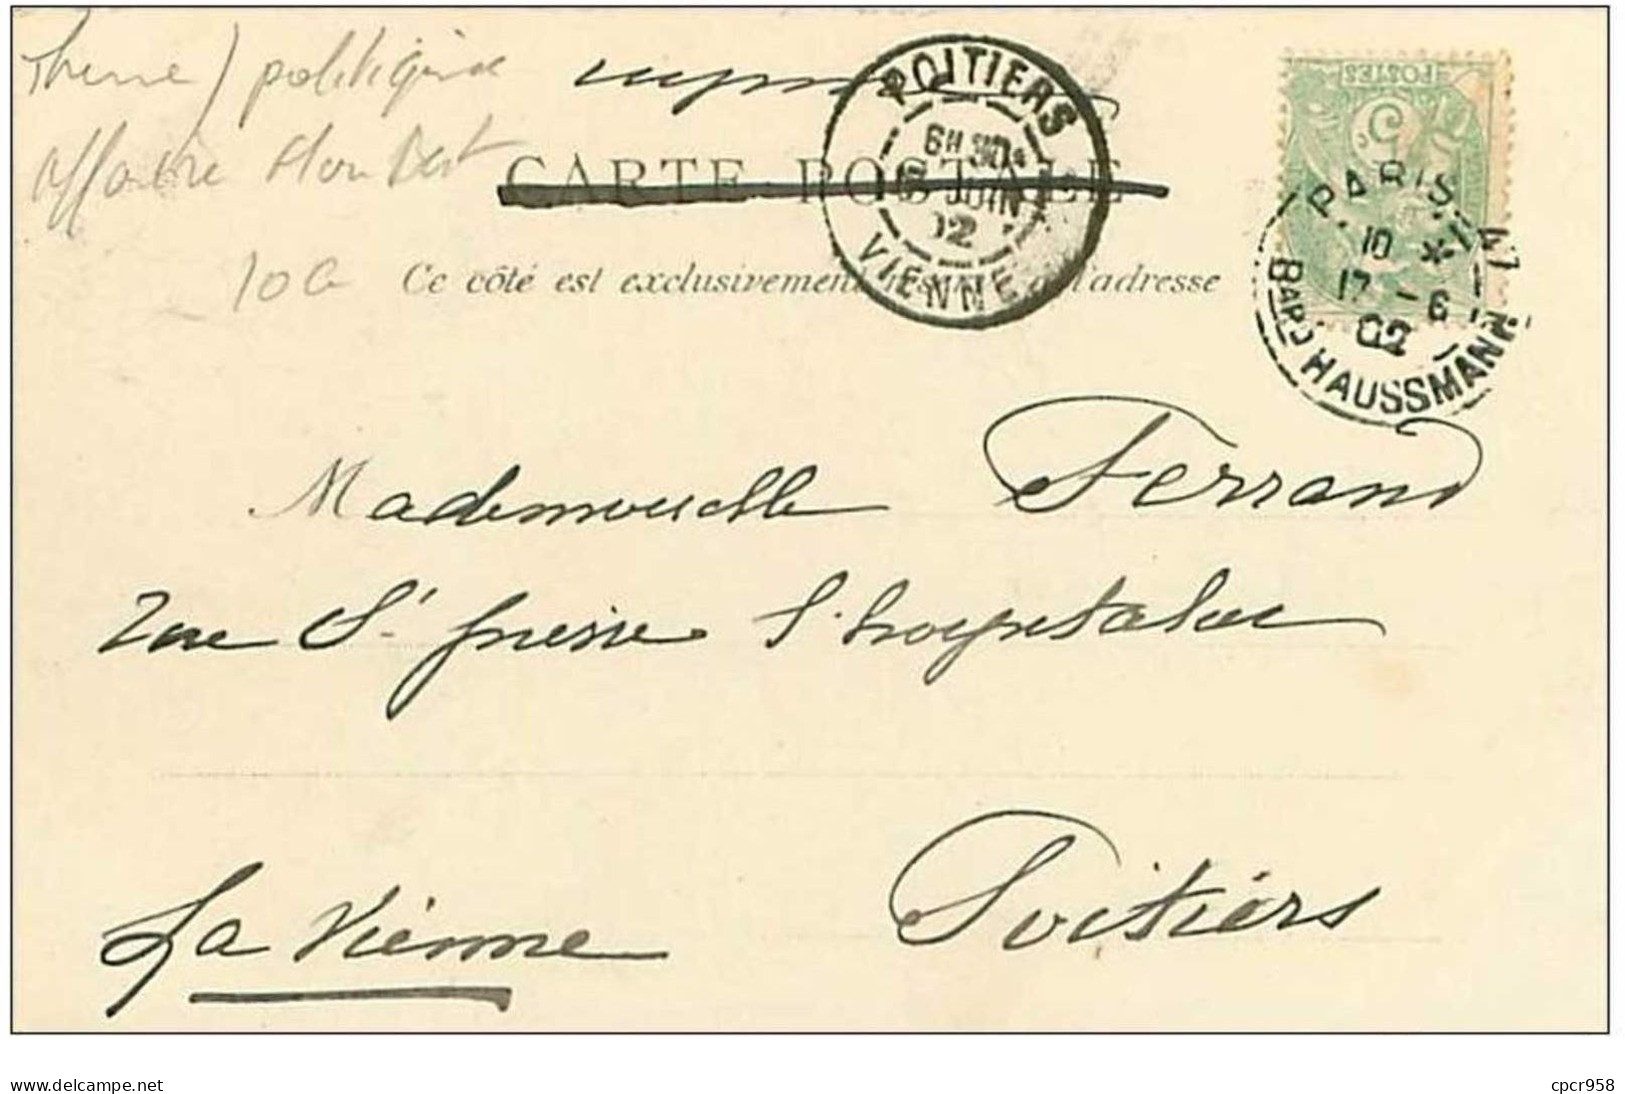 politique
affaire Humbert
imprimé
CARTE POSTALE
10
Ce côté est exclusivement réservé à l'adresse
POITIERS
6H 30
JUIN
02
VIENNE
POSTES
5
PARIS
10 *
17 - 6
02
47 BARD HAUSSMANN
Mademoiselle Ferrand
rue St
La Vienne Poitiers
www.delcampe.net
cpcr958